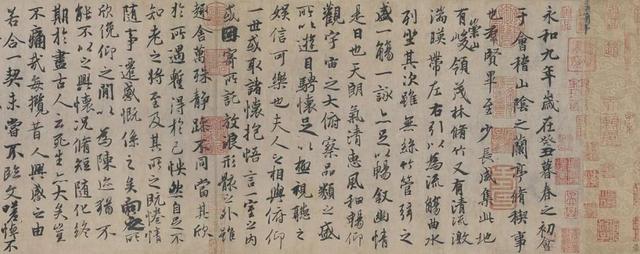 永和九年歲在癸丑暮春之初會
于會稽山陰之蘭亭脩稧事
也群賢畢至少長咸集此地
有崇山峻領茂林脩竹又有清流激
湍暎帶左右引以為流觴曲水
列坐其次雖無絲竹管弦之
盛一觴一詠亦足以暢敘幽情
是日也天朗氣清惠風和暢仰
觀宇宙之大俯察品類之盛
所以遊目騁懷足以極視聽之
娛信可樂也夫人之相與俯仰
一世或取諸懷抱悟言一室之內
或因寄所託放浪形骸之外雖
趣舍萬殊靜躁不同當其欣
於所遇暫得於己怏然自足不
知老之將至及其所之既惓情
隨事遷感慨係之矣向之所
欣俛仰之閒以為陳迹猶不
能不以之興懷況脩短隨化終
期於盡古人云死生亦大矣豈
不痛哉每攬昔人興感之由
若合一契未嘗不臨文嗟悼不